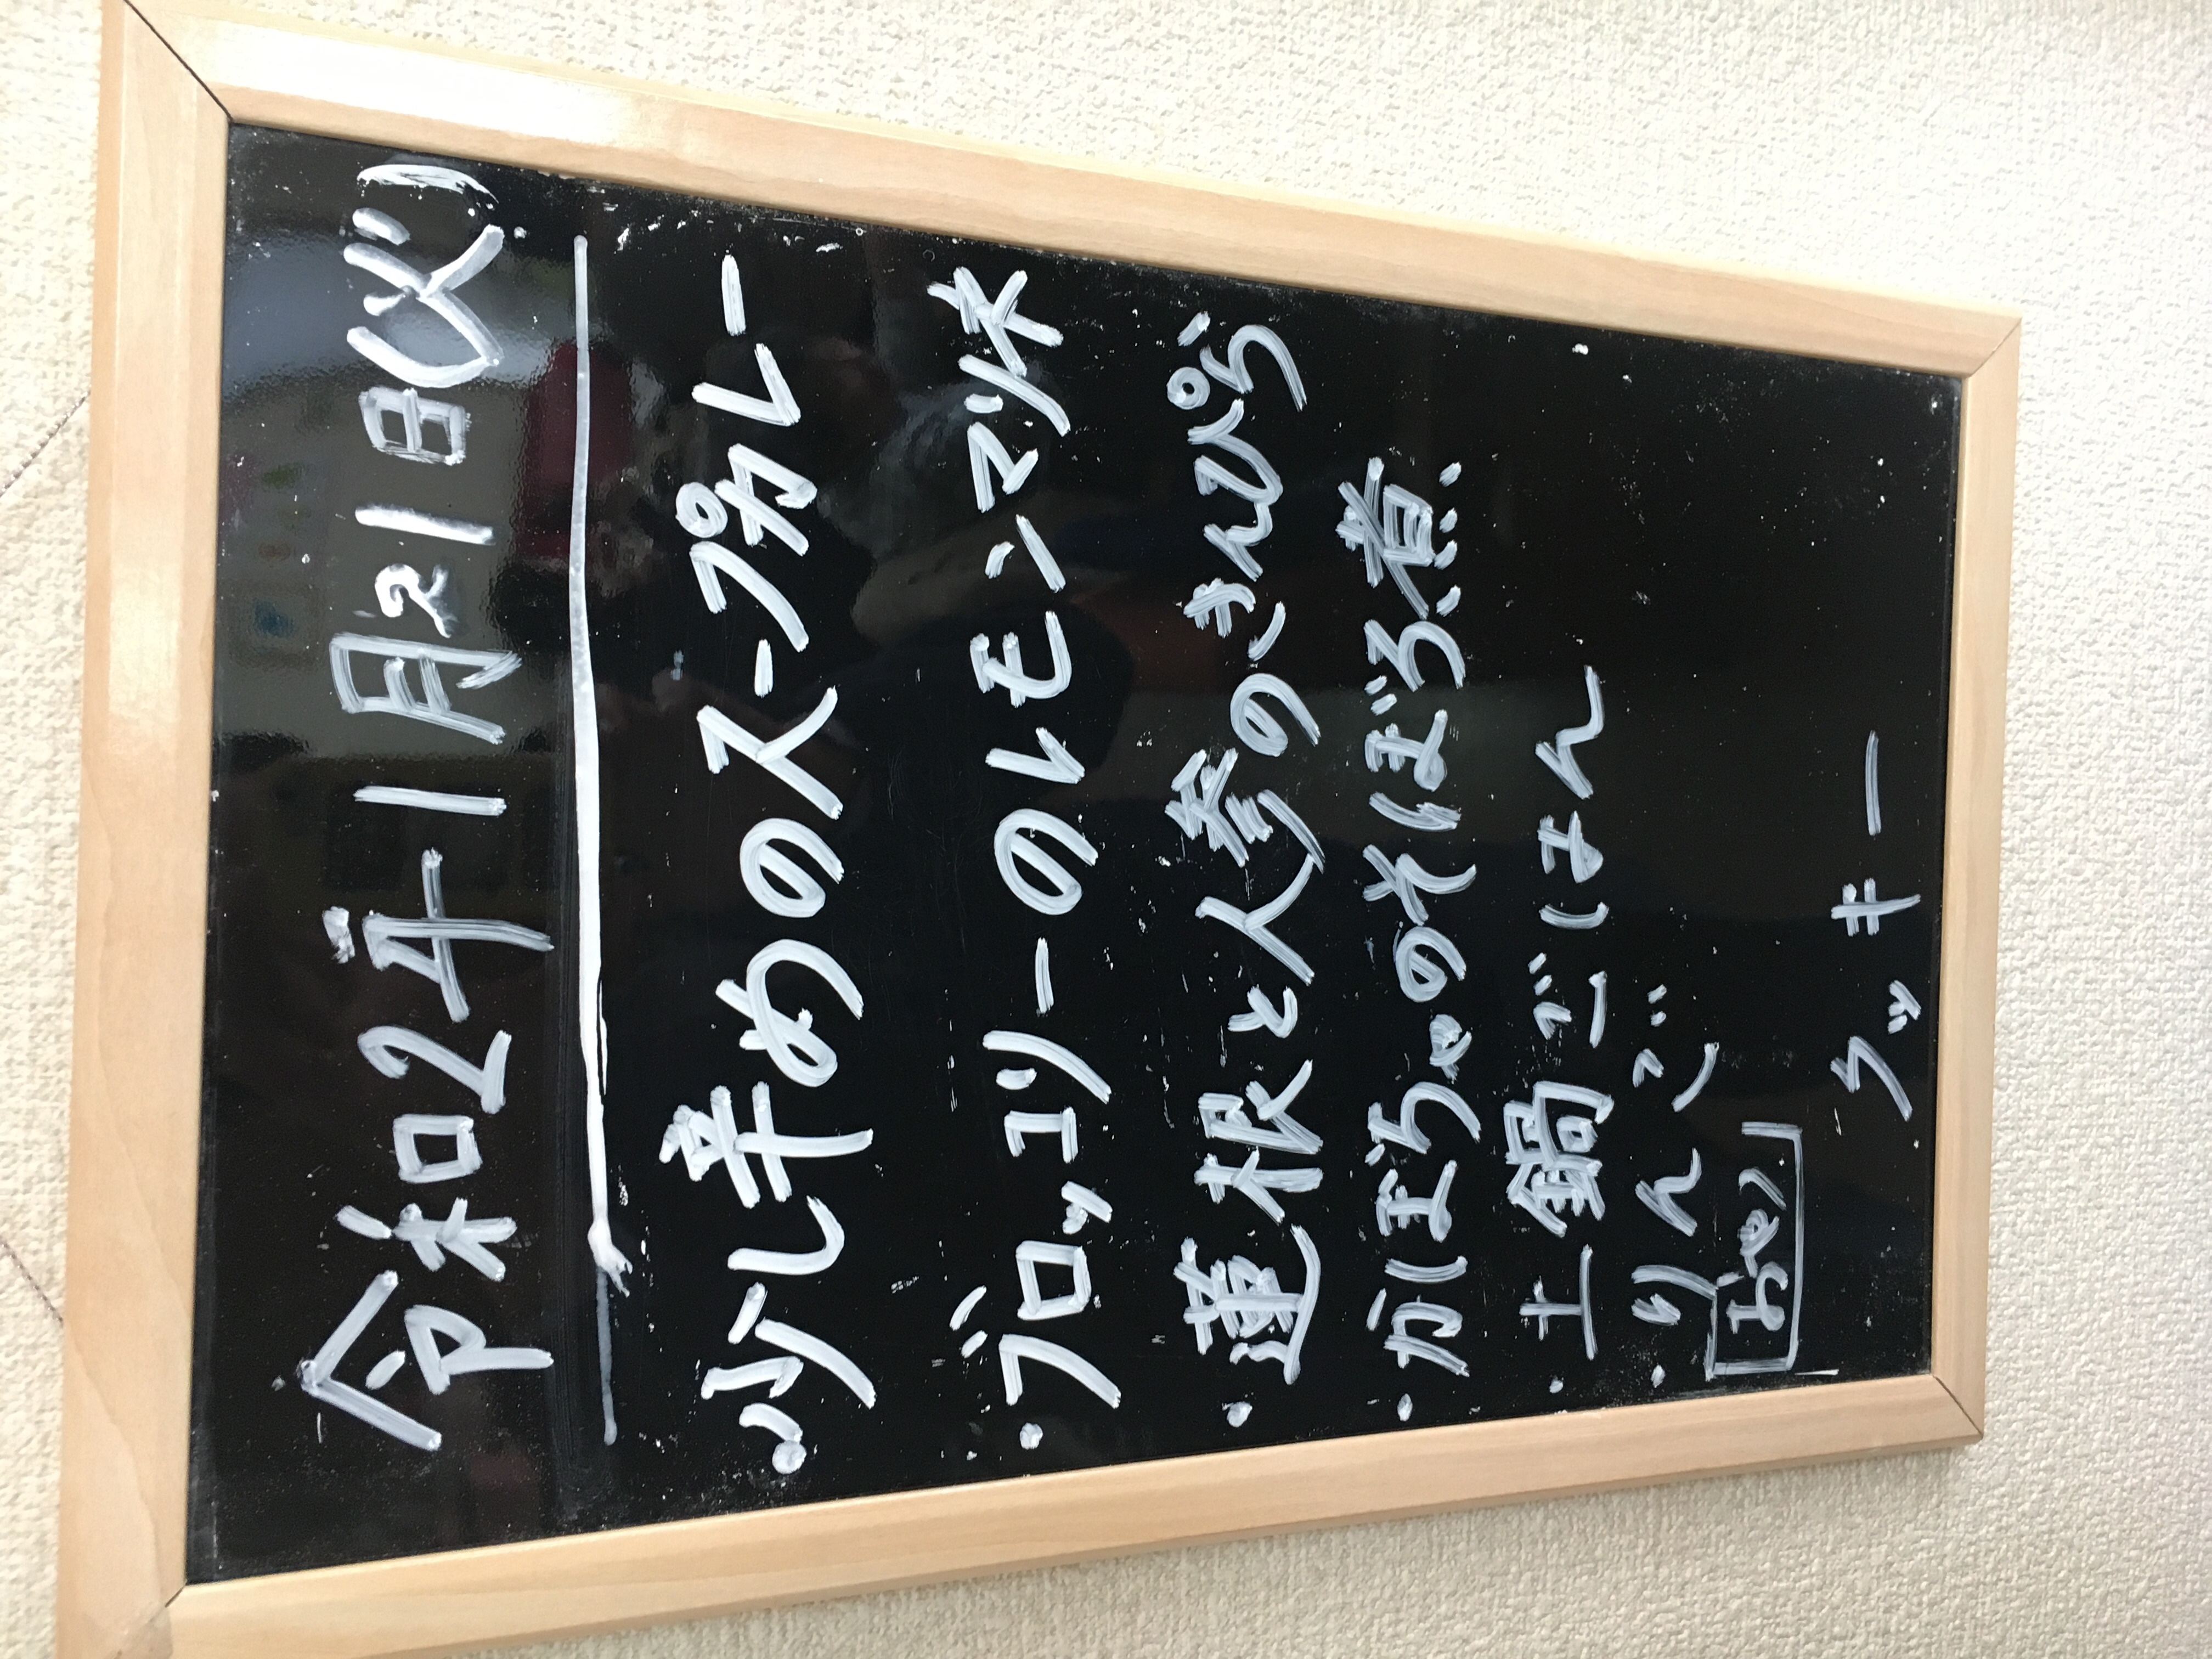 令和2年1月21日(火)
・少し辛めのスープカレー
・ブロッコリーのレモンマリネ
・蓮根と人参のきんぴら
・かぼちゃのそぼろ煮
・土鍋ごはん
・りんご
おやつ
クッキー